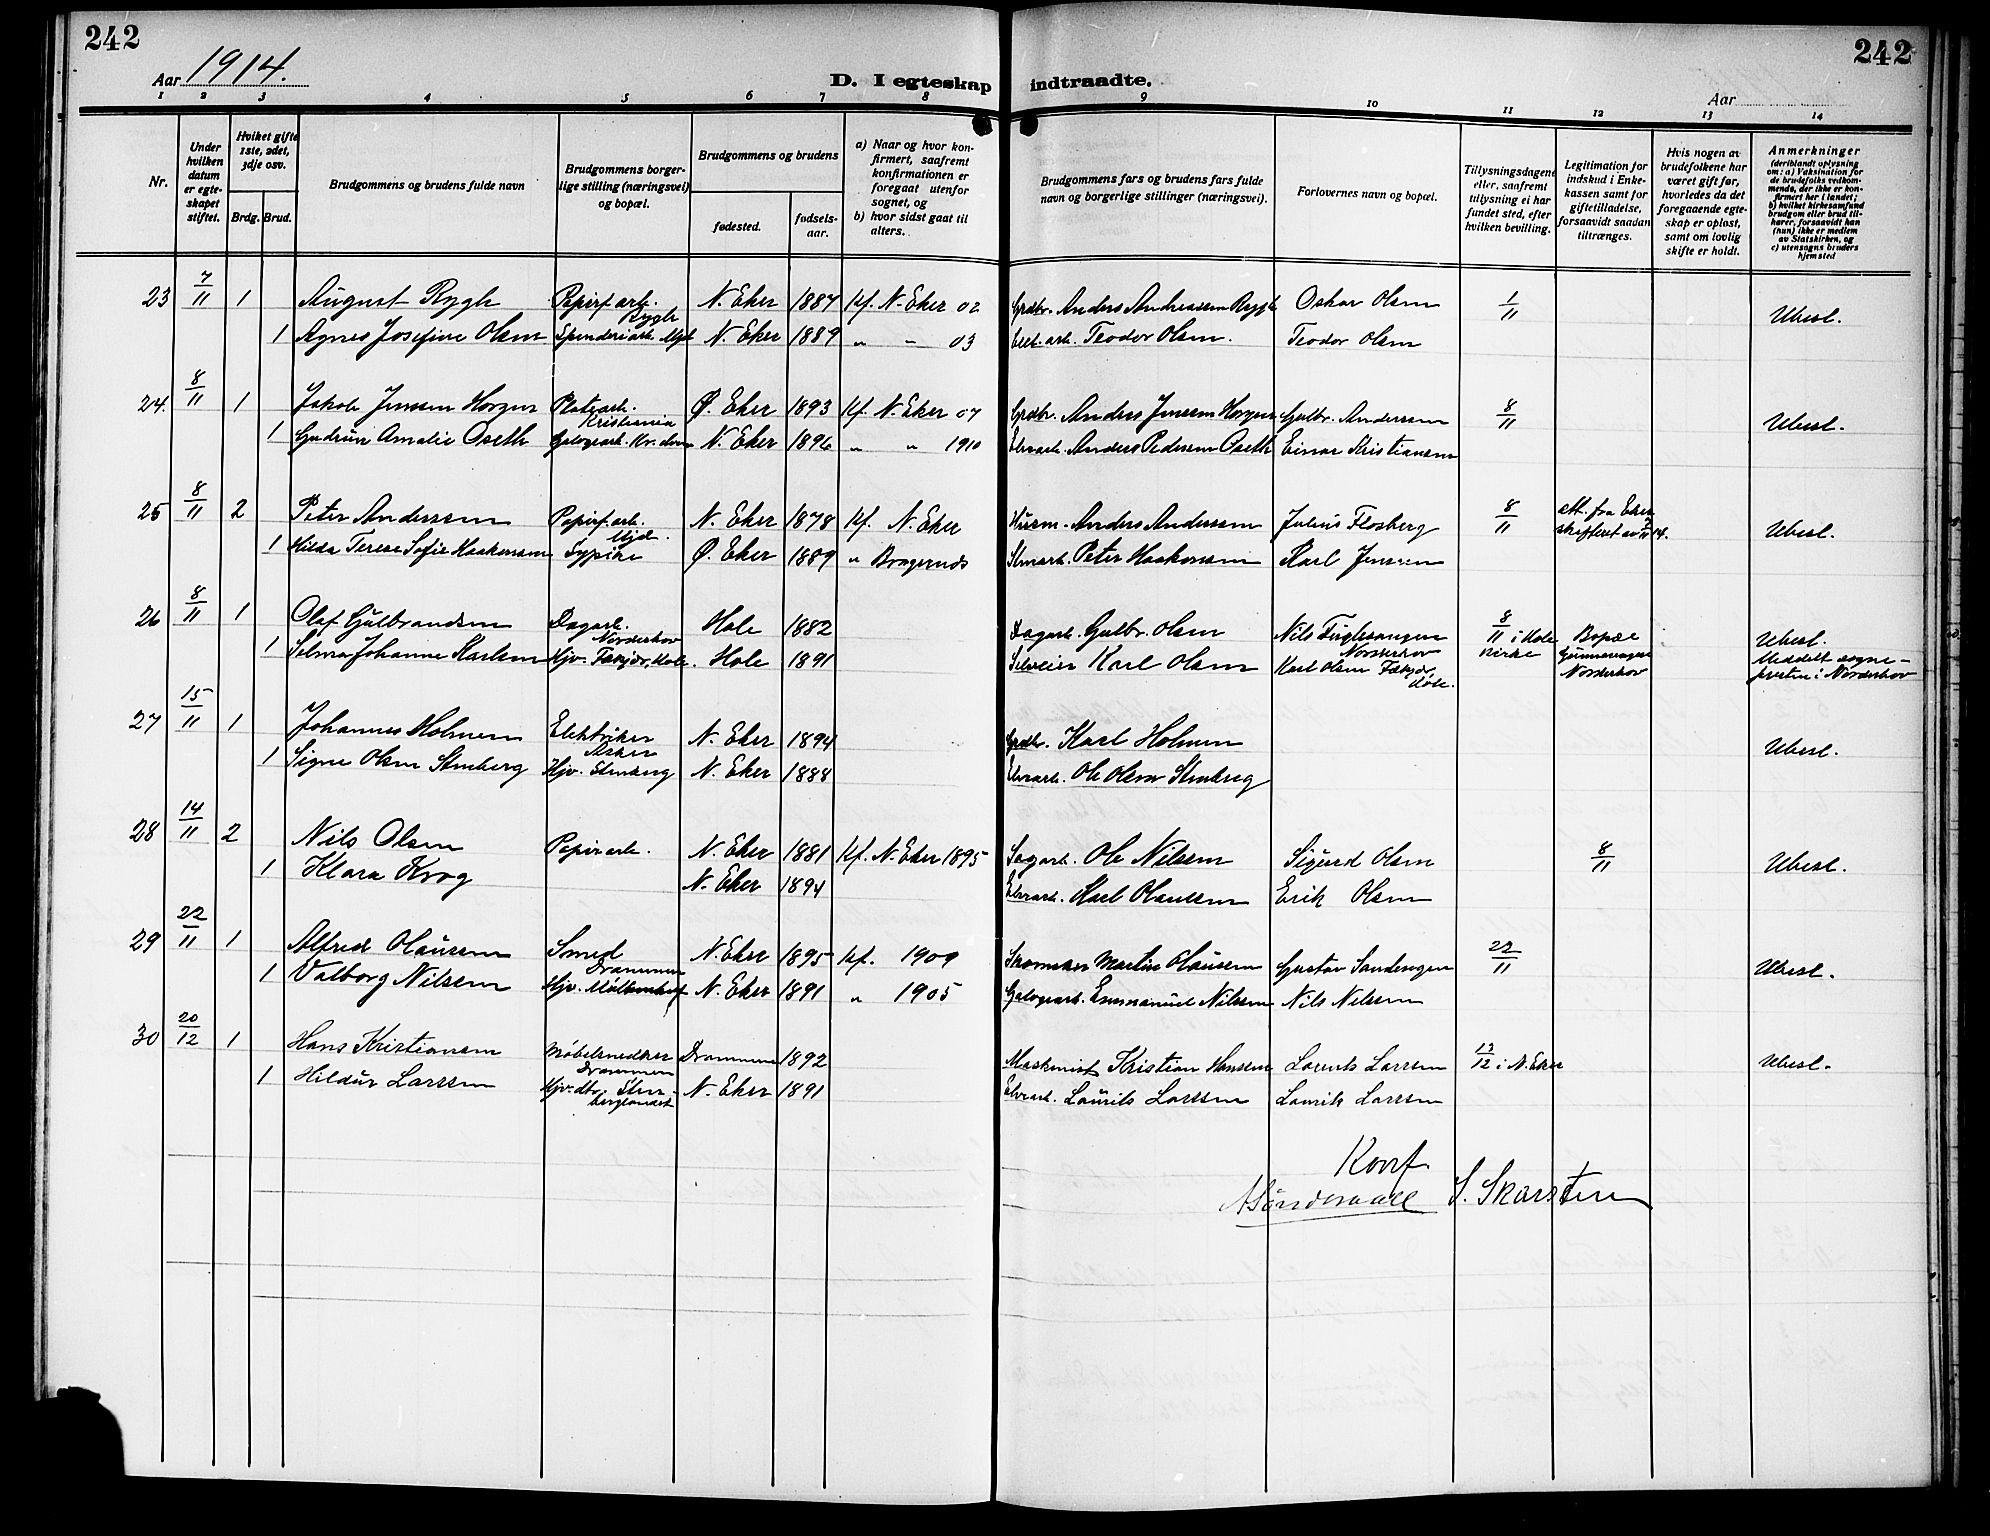 242
242
Aar 1914.
D. I egteskap indtraadte.
Aar
1 2 3 4 5 6 7 8 9 10 11 12 13 14
Nr.
Under hvilken datum er egteskapet stiftet.
Hvilket gifte 1ste, 2det, 3dje osv.
Brdg. Brud.
Brudgommens og brudens fulde navn
Brudgommens borgerlige stilling (næringsvei) og bopæl.
Brudgommens og brudens
fødested.
fødselsaar.
a) Naar og hvor konfirmert, saafremt konfirmationen er foregaat utenfor sognet, og
b) hvor sidst gaat til alters.
Brudgommens fars og brudens fars fulde navn og borgerlige stillinger (næringsvei).
Forlovernes navn og bopæl.
Tillysningsdagene eller, saafremt tillysning ei har fundet sted, efter hvilken bevilling.
Legitimation for indskud i Enkekassen samt for giftetilladelse, forsaavidt saadan tiltrænges.
Hvis nogen av brudefolkene har været gift før, hvorledes da det foregaaende egteskap er opløst, samt om lovlig skifte er holdt.
Anmerkninger (deriblandt oplysning om: a) Vaksination for de brudefolks vedkommende, der ikke er konfirmert her i landet; b) hvilket kirkesamfund brudgom eller brud tilhører, forsaavidt han (hun) ikke er medlem av Statskirken, og c) utensogns bruders hjemsted
23 7/11 1 August Rygh Papirf.arb. Rygh N. Eker 1887 Kf. N. Eker 02 Grdbr. Anders Andreassen Rygh Oskar Olsen 1/11 Ubesl.
1 Agnes Josefine Olsen Spinderiarb. Mjd N. Eker 1889 " " 03 arb. Teodor Olsen. Teodor Olsen
24. 8/11 1 Jakob Jensen Horgen Platearb. Kristiania Ø. Eker 1893 Kf. N. Eker 07 Grdbr. Anders Jensen Horgen Gulbr. Andersen 8/11 Ubesl.
1 Gudrun Amalie Oseth Galogearb. N. Eker 1896 " " 1910 Elvearb. Anders Pedersen Oseth Einar Kristiansen
25 8/11 2 Peter Andersen Papirf.arb. Mjd. N. Eker 1878 Kf. N. Eker Husm. Anders Andersen Julius Flosberg 8/11 att. fra Eker skifteret av 14. Ubesl.
1 Hilda Terese Sofie Haakonsen Sypike Ø. Eker 1889 " Bragernes Peter Haakonsen Karl Jensen
26 8/11 1 Olaf Gulbrandsen Dagarb. Norderhov Hole 1882 Dagarb. Gulbr. Olsen Nils Fuglesangen Norderhov 8/11 i Hole kirke Bopæl Norderhov Ubesl. Meddelt sogne-
1 Selma Johanne Karlsen Hjv. Hole. Hole 1891 Selveier Karl Olsen Karl Olsen Hole. presten i Norderhov
27 15/11 1 Johannes Holmen Elektriker Asker N. Eker 1894 Grdbr. Karl Holmen Ubesl.
1 Signe Olsen Stenberg Hjv. Stenberg N. Eker 1888 Elvearb. Ole Olsen Stenberg
28 14/11 2 Nils Olsen Papirarb. N. Eker 1881 Kf. N. Eker 1895 Sagarb. Ole Nilsen Sigurd Olsen 8/11 Ubesl.
1 Klara Krog N. Eker 1894 Elvearb. Karl Olaussen Erik Olsen
29 22/11 1 Alfred Olausen Smed Drammen N. Eker 1895 Kf. 1909 Skomaker Martin Olausen Gustav Sandengen 22/11 Ubesl.
1 Valborg Nilsen Hjv. N. Eker 1891 " 1905 Galogearb. Emmanuel Nilsen Nils Nilsen
30 20/12 1 Hans Kristiansen Møbelsnedker Drammen Drammen 1892 Maskinist Kristian Hansen Laurits Larsen 13/12 i N. Eker Ubesl.
1 Hildur Larsen Hjv. dtr. Stenberglandet N. Eker 1891 Elvearb. Laurits Larsen Laurits Larsen
Konf.
S. Skarsten